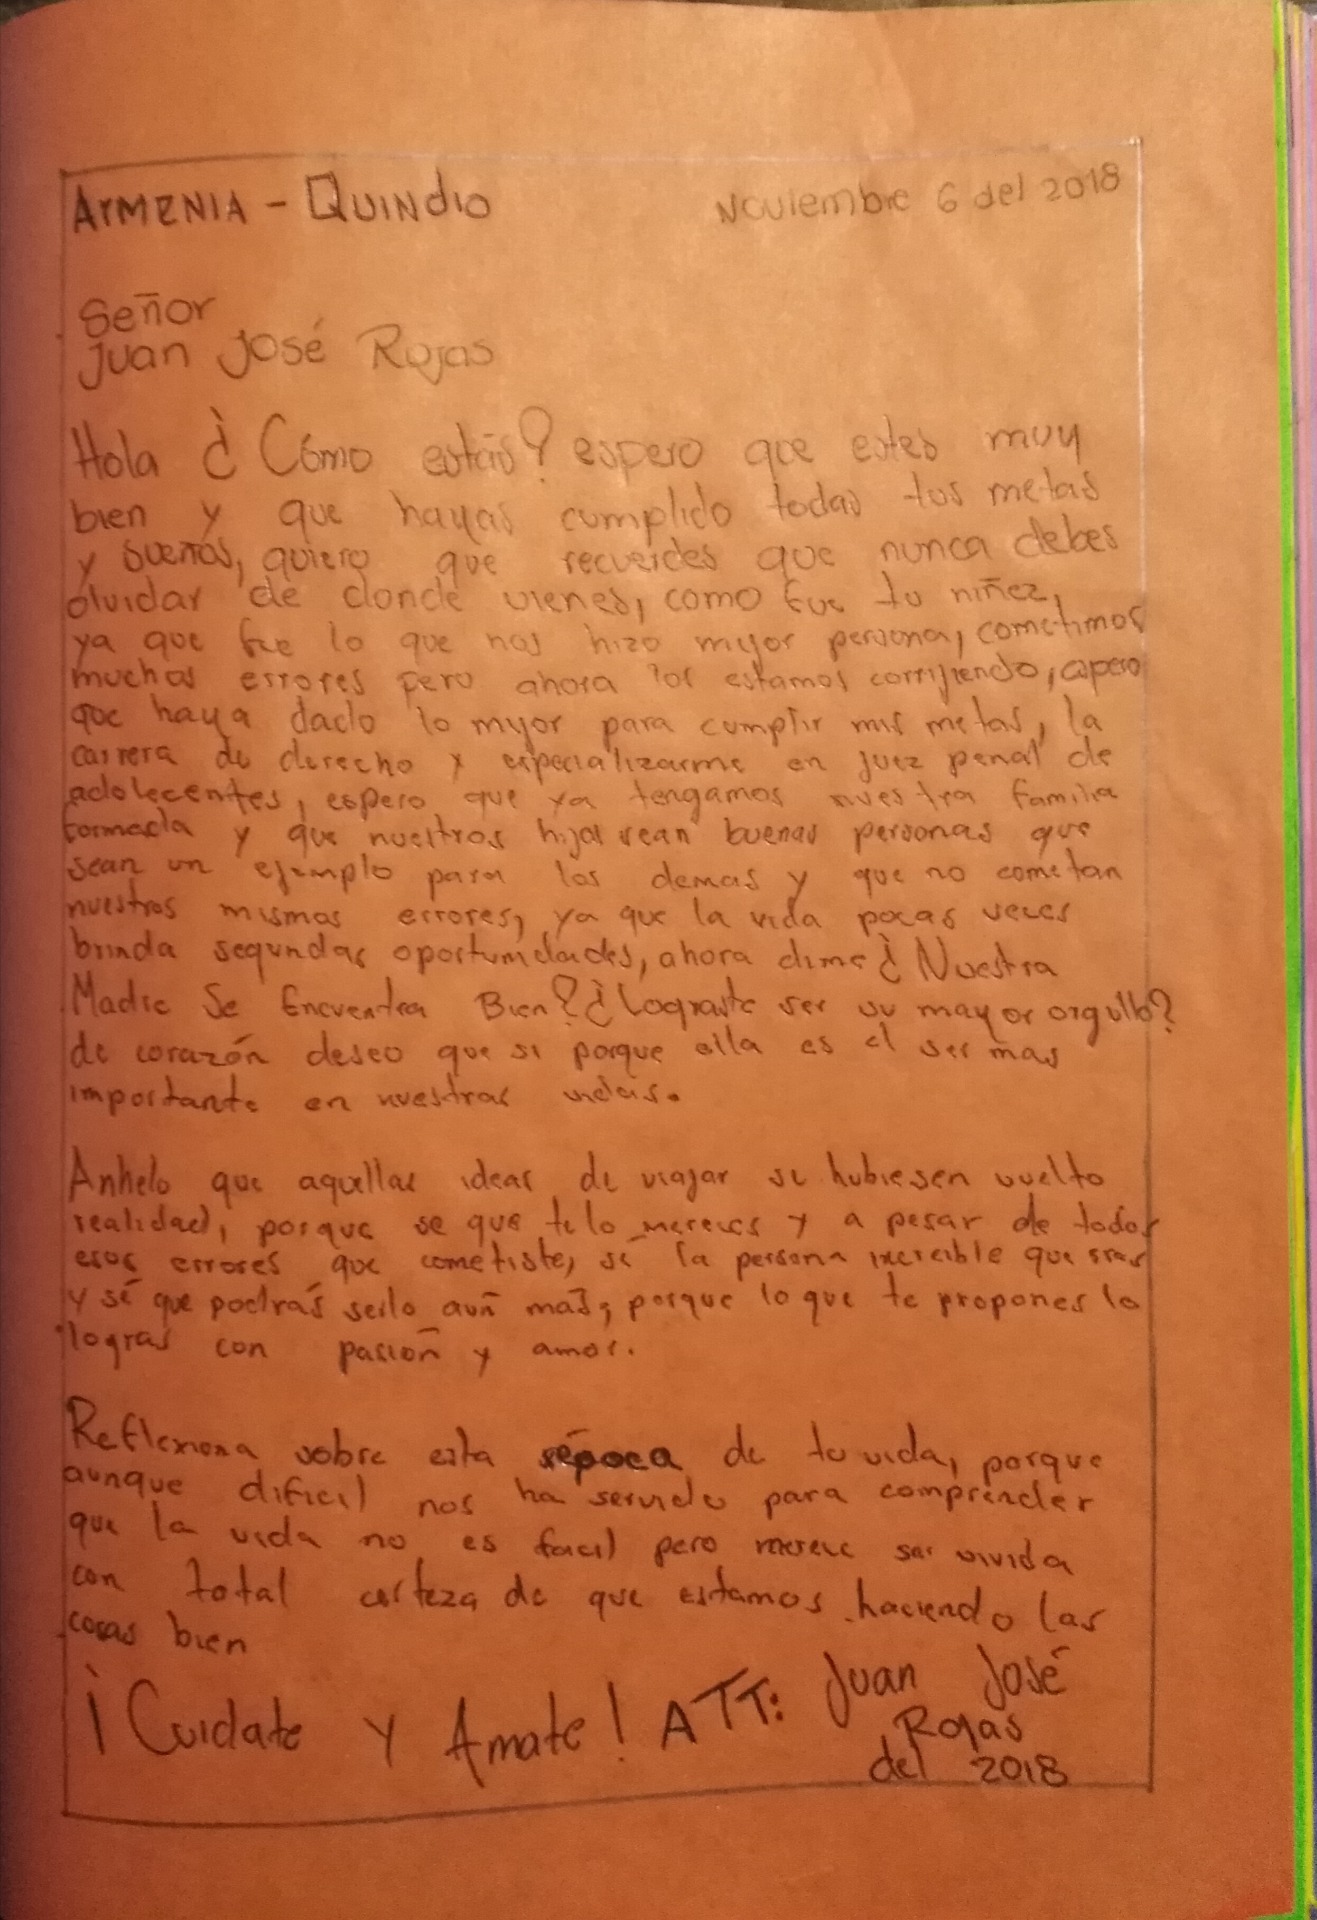 ArMENIA - QUINDIO
Noviembre 6 del 2018
Señor
Juan José Rojas
Hola ¿Cómo estás? espero que estes muy
bien y que hayas cumplido todas tus metas
y sueños, quiero que recuerdes que nunca debes
olvidar de donde vienes, como fue tu niñez,
ya que fue lo que nos hizo mejor persona, cometimos
muchos errores pero ahora los estamos corrijiendo, espero
que haya dado lo mejor para cumplir mis metas, la
carrera de derecho y especializarme en juez penal de
adolecentes, espero que ya tengamos nuestra familia
formada y que nuestros hijos sean buenas personas que
sean un ejemplo para los demas y que no cometan
nuestros mismos errores, ya que la vida pocas veces
brinda segundas oportunidades, ahora dime ¿Nuestra
Madre Se Encuentra Bien? ¿Lograste ser su mayor orgullo?
de corazón deseo que si porque ella es el ser mas
importante en nuestras vidas.
Anhelo que aquellas ideas de viajar se hubiesen vuelto
realidad, porque se que te lo mereces y a pesar de todos
esos errores que cometiste, sé la persona increible que eras
y sé que podrás serlo aún más, porque lo que te propones lo
logras con pasión y amor.
Reflexiona sobre esta época de tu vida, porque
aunque dificil nos ha servido para comprender
que la vida no es facil pero merece ser vivida
con total certeza de que estamos haciendo las
cosas bien
¡Cuidate y Amate! ATT: Juan José
Rojas
del 2018